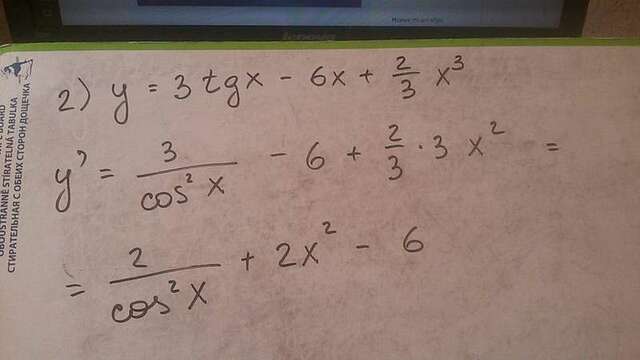 2) y = 3 tgx - 6x + 2/3 x³
y' = 3/cos²x - 6 + 2/3 · 3 x² =
= 2/cos²x + 2x² - 6
OBOUSTRANNĚ STÍRATELNÁ TABULKA
СТИРАТЕЛЬНАЯ С ОБЕИХ СТОРОН ДОЩЕЧКА